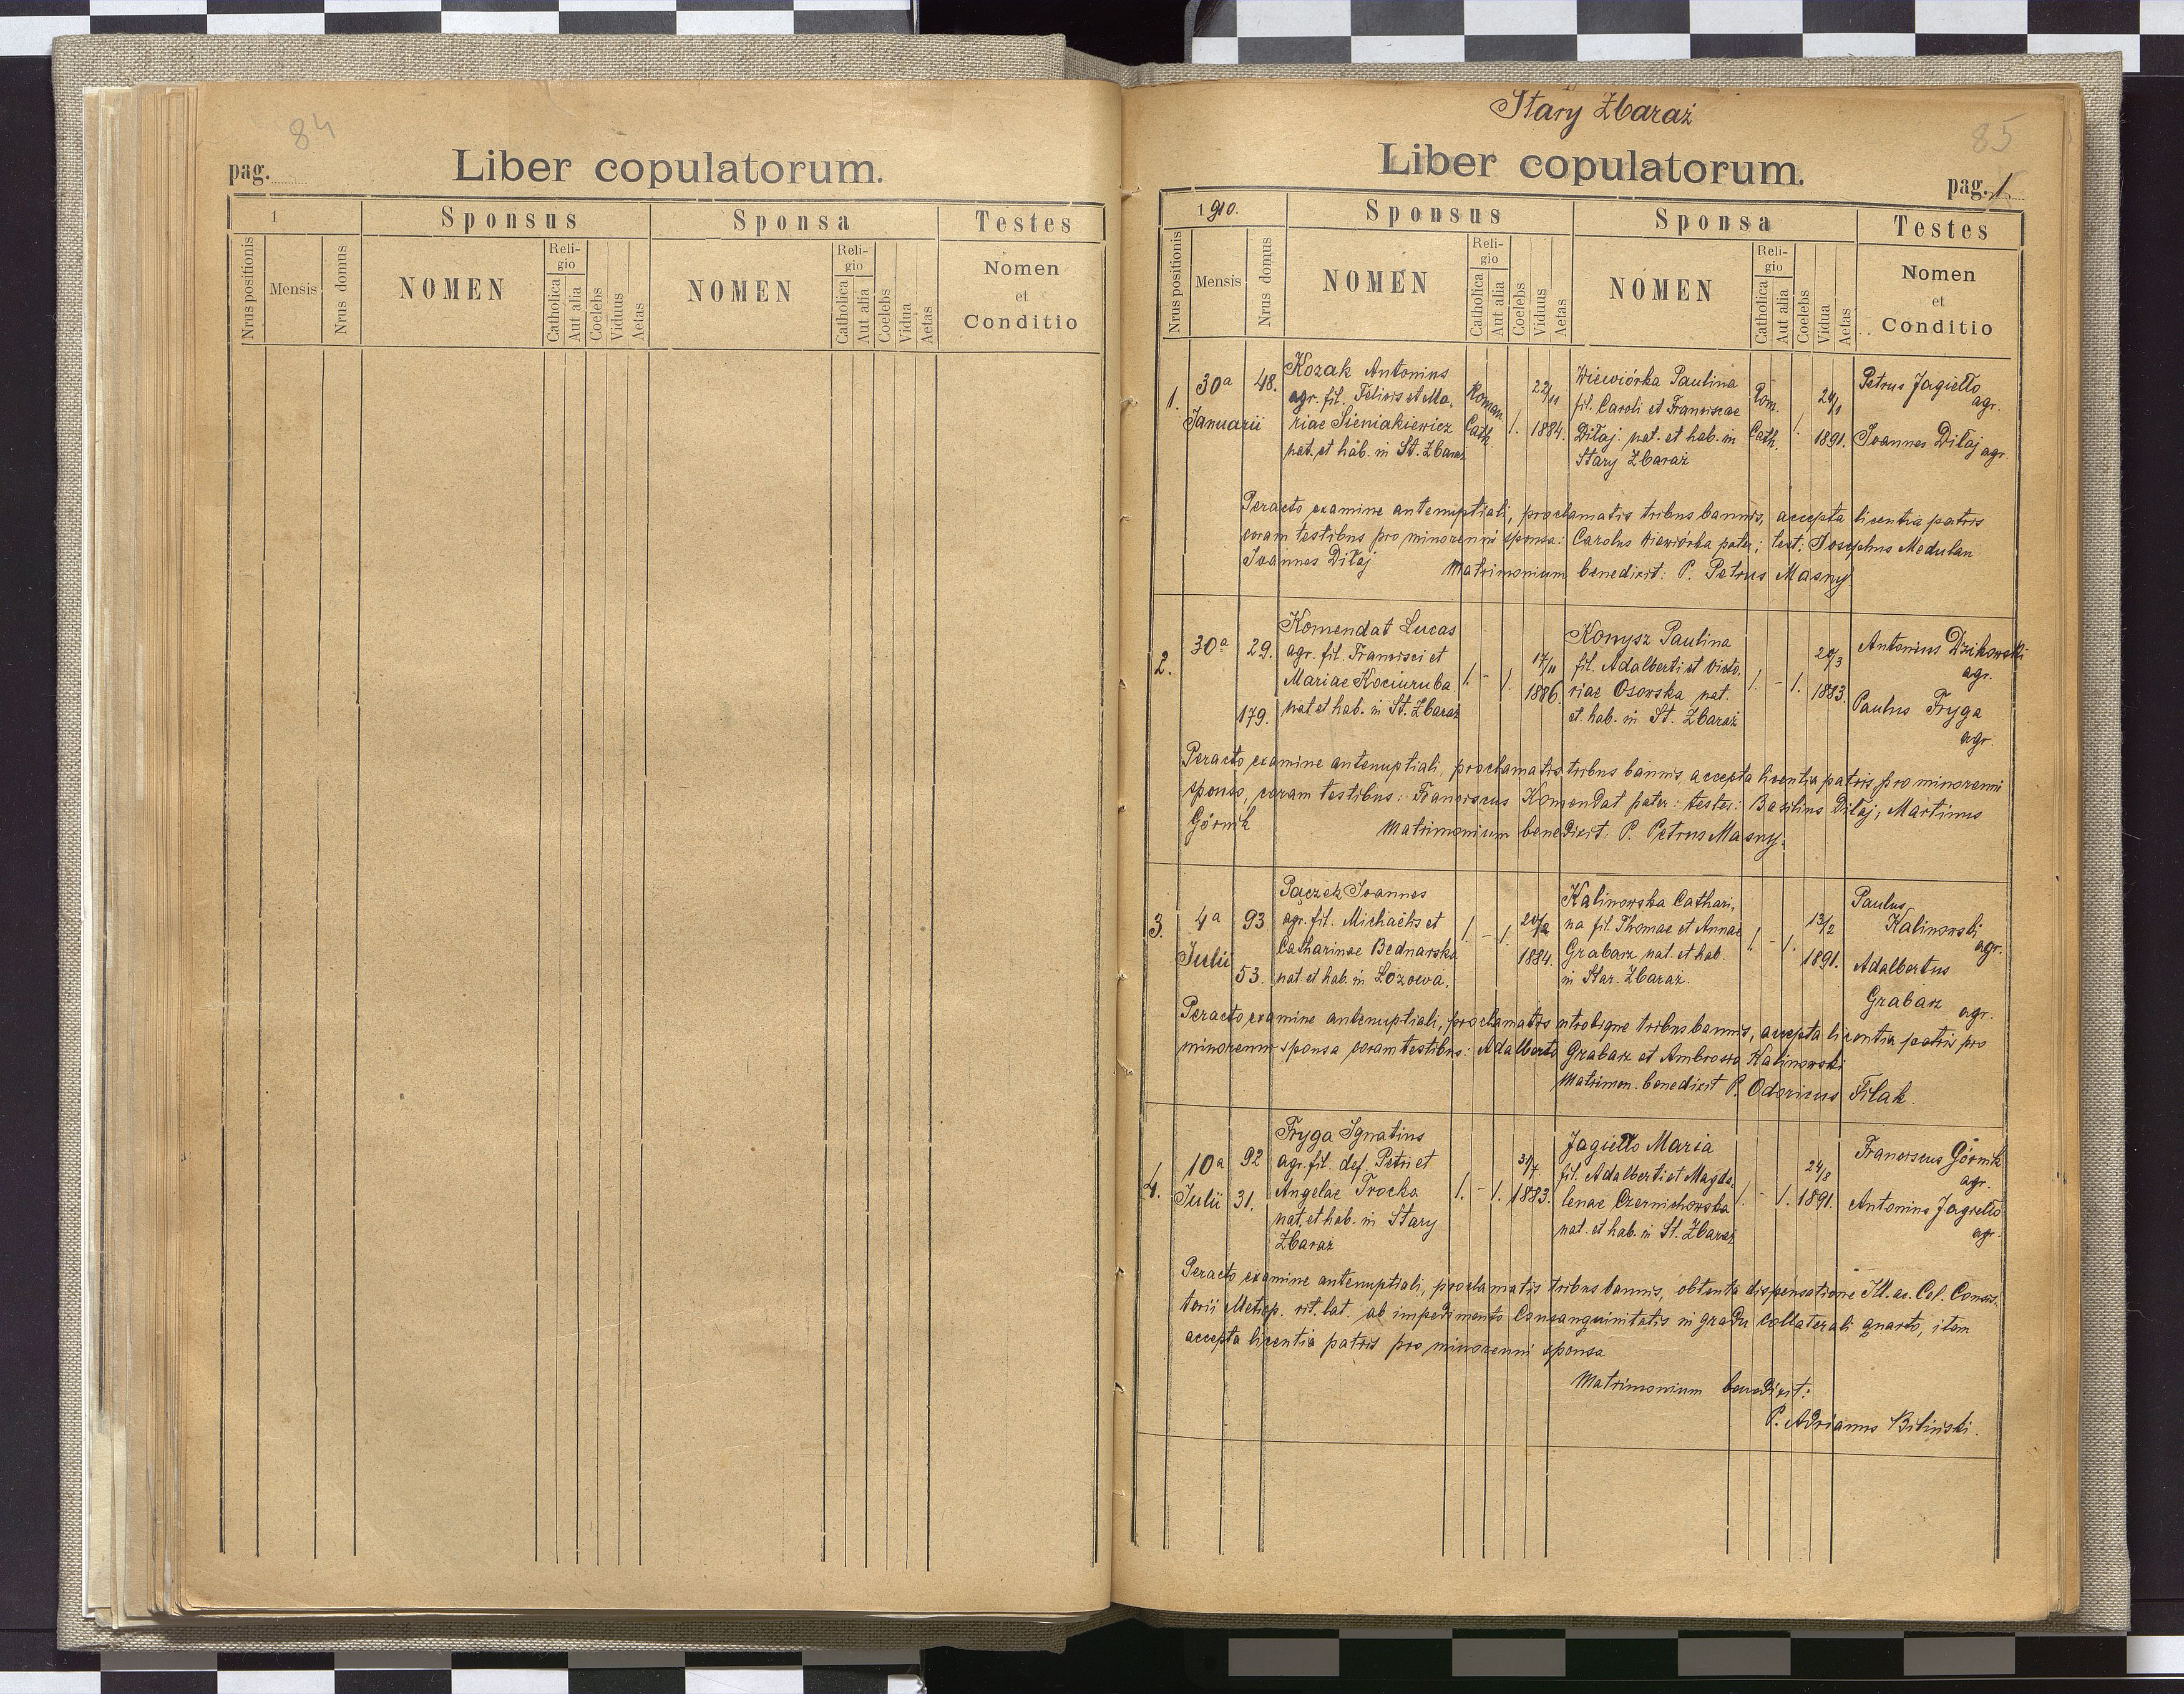 84
pag.
Liber copulatorum.
1
Sponsus
Sponsa
Testes
Nrus positionis
Mensis
Nrus domus
NOMEN
Religio
Catholica
Aut alia
Coelebs
Viduus
Aetas
NOMEN
Religio
Catholica
Aut alia
Coelebs
Vidua
Aetas
Nomen
et
Conditio
Stary Zbaraż
85
Liber copulatorum.
pag. 1
1910.
Sponsus
Sponsa
Testes
Nrus positionis
Mensis
Nrus domus
NOMEN
Religio
Catholica
Aut alia
Coelebs
Viduus
Aetas
NOMEN
Religio
Catholica
Aut alia
Coelebs
Vidua
Aetas
Nomen
et
Conditio
1.
30a
Januarii
48.
Kozak Antonius
agr. fil. Felicis et Ma,
riae Sieniakiewicz
nat. et hab. in St. Zbaraż
Roman.
Cath.
1.
22/11
1884.
Wiewiórka Paulina
fil. Caroli et Franciscae
Diłaj. nat. et hab. in
Stary Zbaraż
Rom.
Cath.
1.
24/1
1891.
Petrus Jagiełło
agr.
Joannes Diłaj agr.
Peracto examine antenuptiali, proclamatis tribus bannis, accepta licentia patris
coram testibus pro minorenni sponsa: Carolus Wiewiórka pater; test: Josephus Medulan
Joannes Diłaj
Matrimonium benedixit: P. Petrus Masny
2.
30a
29.
179.
Komendat Lucas
agr. fil. Francisci et
Mariae Kociuruba
nat. et hab. in St. Zbaraż
1. - 1.
17/11
1886.
Konysz Paulina
fil. Adalberti et Victo,
riae Osowska nat.
et. hab. in St. Zbaraż
1. - 1.
20/3
1883.
Antonius Dzikowski
agr.
Paulus Fryga
agr.
Peracto examine antenuptiali, proclamatis tribus bannis accepta licentia patris pro minorenni
sponso, coram testibus: Franciscus Komendat pater: testes: Basilius Diłaj, Martinus
Górnik
Matrimonium benedixit: P. Petrus Masny.
3.
4a
Julii
93
53.
Pączek Joannes
agr. fil. Michaëlis et
Catharinae Bednarska
nat. et hab. in Łozowa.
1. - 1.
1884.
Kalinowska Cathari,
na fil. Thomae et Annae
Grabarz nat. et hab.
in Star. Zbaraż.
1. - 1.
13/2
1891.
Paulus
Kalinowski
agr.
Adalbertus
Grabarz agr.
Peracto examine antenuptiali, proclamatis utrobique tribus bannis, accepta licentia patris pro
minorenni sponsa coram testibus: Adalberto Grabarz et Ambrosio Kalinowski
Matrimon. benedixit P. Odoricus Filak.
4.
10a
Julii
92
31.
Fryga Ignatius
agr. fil. def. Petri et
Angelae Trocka
nat. et hab. in Stary
Zbaraż
1. - 1.
31/7.
1883.
Jagiełło Maria
fil. Adalberti et Magda,
lenae Czernichowska
nat. et hab. in St. Zbaraż
1. - 1.
24/8
1891.
Franciscus Górnik
agr.
Antonius Jagiełło
agr.
Peracto examine antenuptiali, proclamatis tribus bannis, obtenta dispensatione Ill. ac. Cel. Consis,
torii Metrop. rit. lat. ab impedimento Consanguinitatis in gradu collaterali quarto, item
accepta licentia patris pro minorenni sponsa
Matrimonium benedixit:
P. Adrianus Biliński.